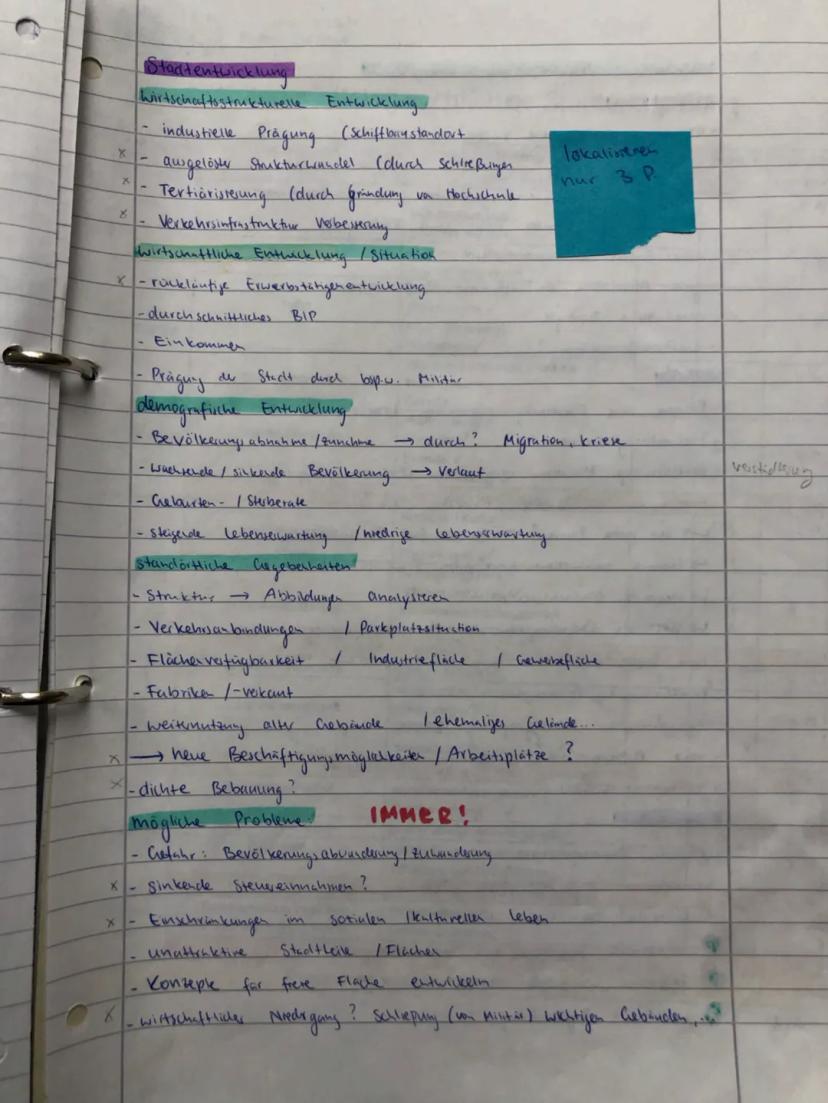 Stadtentwicklung
wirtschaftsstrukturelle Entwicklung
- industielle Prägung (Schiffbaustandort
x - ausgelöster Strukturwandel (durch Schließungen
x - Tertiärisierung (durch Gründung von Hochschule
x - Verkehrsinfrastruktur Verbesserung
lokalisieren
nur 3 P.
wirtschaftliche Entwicklung / Situation
x - rückläufige Erwerbstätigenentwicklung
- durchschnittliches BIP
- Einkommen
- Prägung der Stadt durch bspw. Militär
demografische Entwicklung
- Bevölkerungsabnahme / zunahme → durch? Migration, kriese
- wachsende / sinkende Bevölkerung → Verlauf
- Geburten- / Sterberate
- steigende Lebenserwartung / niedrige Lebenserwartung
standörtliche Gegebenheiten
- Struktur → Abbildungen analysieren
- Verkehrsanbindungen / Parkplatzsituation
- Flächenverfügbarkeit / Industriefläche / Gewerbefläche
- Fabriken /
- Weiternutzung alter Gebäude / ehemaliges Gelände...
x → neue Beschäftigungsmöglichkeiten / Arbeitsplätze ?
x - dichte Bebauung?
mögliche Probleme: IMMER!
- Gefahr: Bevölkerungsabwanderung / Zuwanderung
x - sinkende Steuereinnahmen ?
x - Einschränkungen im sozialen / kulturellen leben
- unattraktive Stadtteile / Flächen
- Konzepte für freie Fläche entwickeln
x - wirtschaftlicher Niedergang ? Schließung (von Militär) wichtigen Gebäuden, ...